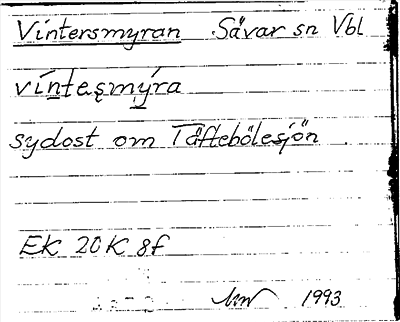 Vintersmyran Sävar sn Vbl
vín̲tes̨mý̲ra
sydost om Täftebölesjön
EK 20K 8f
1993